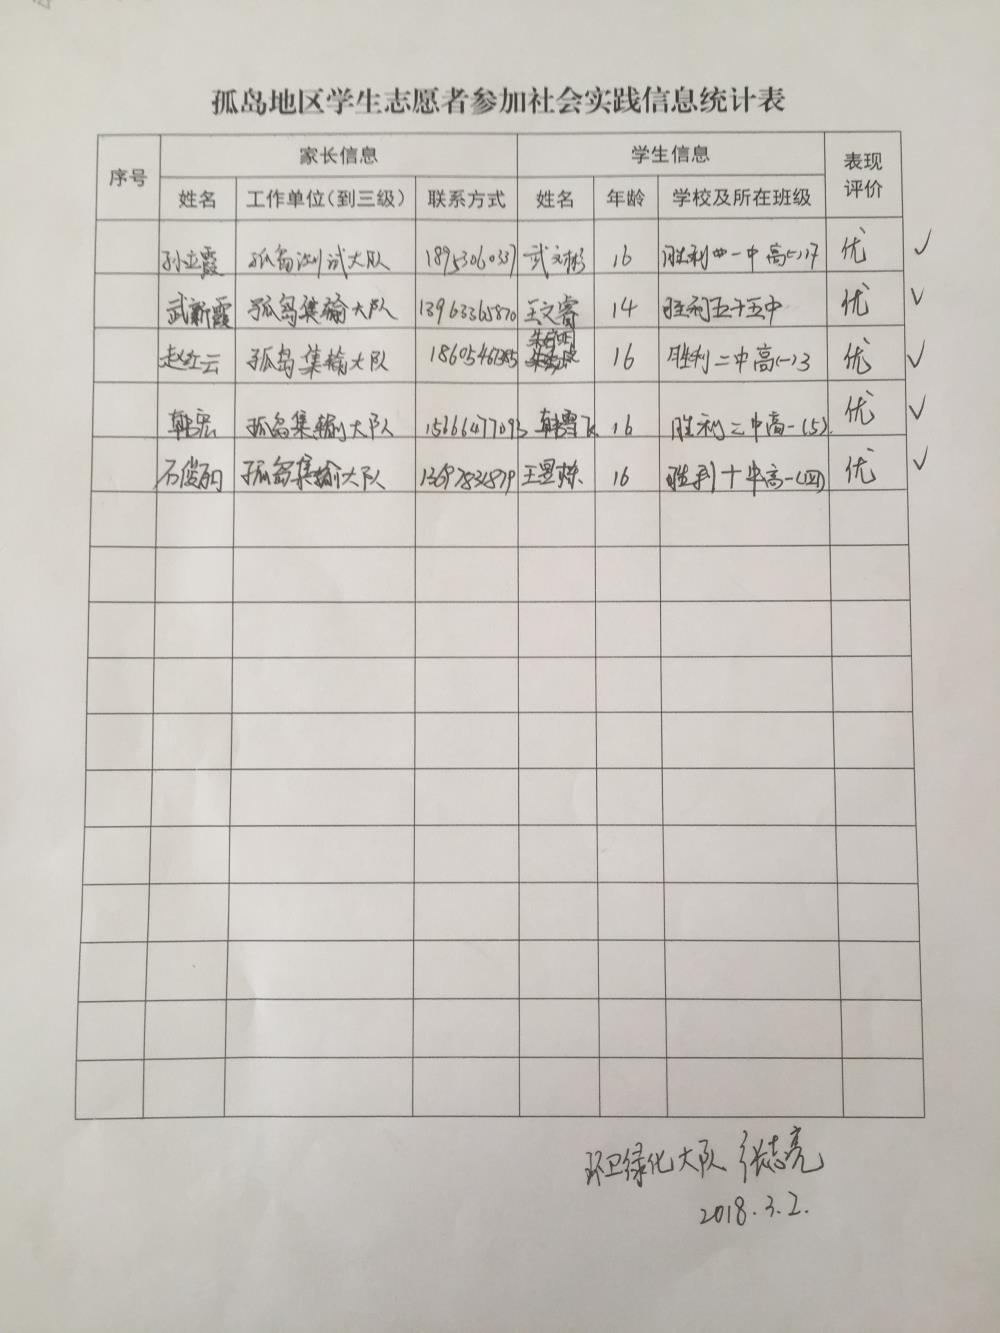 孤岛地区学生志愿者参加社会实践信息统计表
序号 家长信息 学生信息 表现评价
姓名 工作单位(到三级) 联系方式 姓名 年龄 学校及所在班级
孙立霞 孤岛测试大队 武文彬 16 胜利四一中高(一)17 优 ✓
武新霞 孤岛集输大队 13963365870 王文睿 14 胜利五十五中 优 ✓
赵红云 孤岛集输大队 18605467385 16 胜利二中高(一)3 优 ✓
韩宏 孤岛集输大队 15666477093 韩雪飞 16 胜利二中高一(5). 优 ✓
石俊丽 孤岛集输大队 王昱栋 16 胜利十中高一(四) 优 ✓
环卫绿化大队 张志亮
2018.3.2.